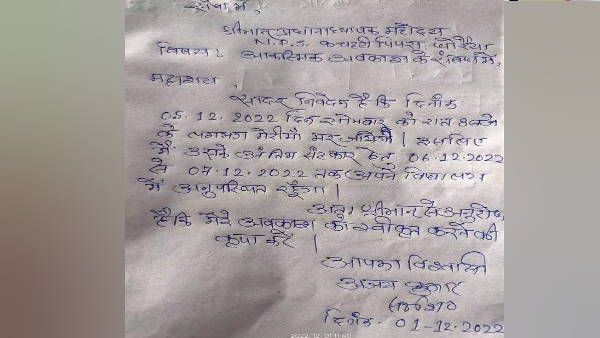 सेवा में,
श्रीमान प्रधानाध्यापक महोदय
N.P.S. कचहरी पिपरा, बाराहाट
विषय:- आकस्मिक अवकाश के संबंध में,
महाशय,
सादर निवेदन है कि दिनांक
05.12.2022 दिन सोमवार को रात 8 बजे
के लगभग मेरी माँ मर जायेगी। इसलिए
मैं उसके अंतिम संस्कार हेतु 06.12.2022
से 07.12.2022 तक अपने विद्यालय
में अनुपस्थित रहूँगा।
अतः श्रीमान से अनुरोध
है कि मेरे अवकाश को स्वीकृत करने की
कृपा करें।
आपका विश्वासी
अजय कुमार
दिनांक- 01-12-2022